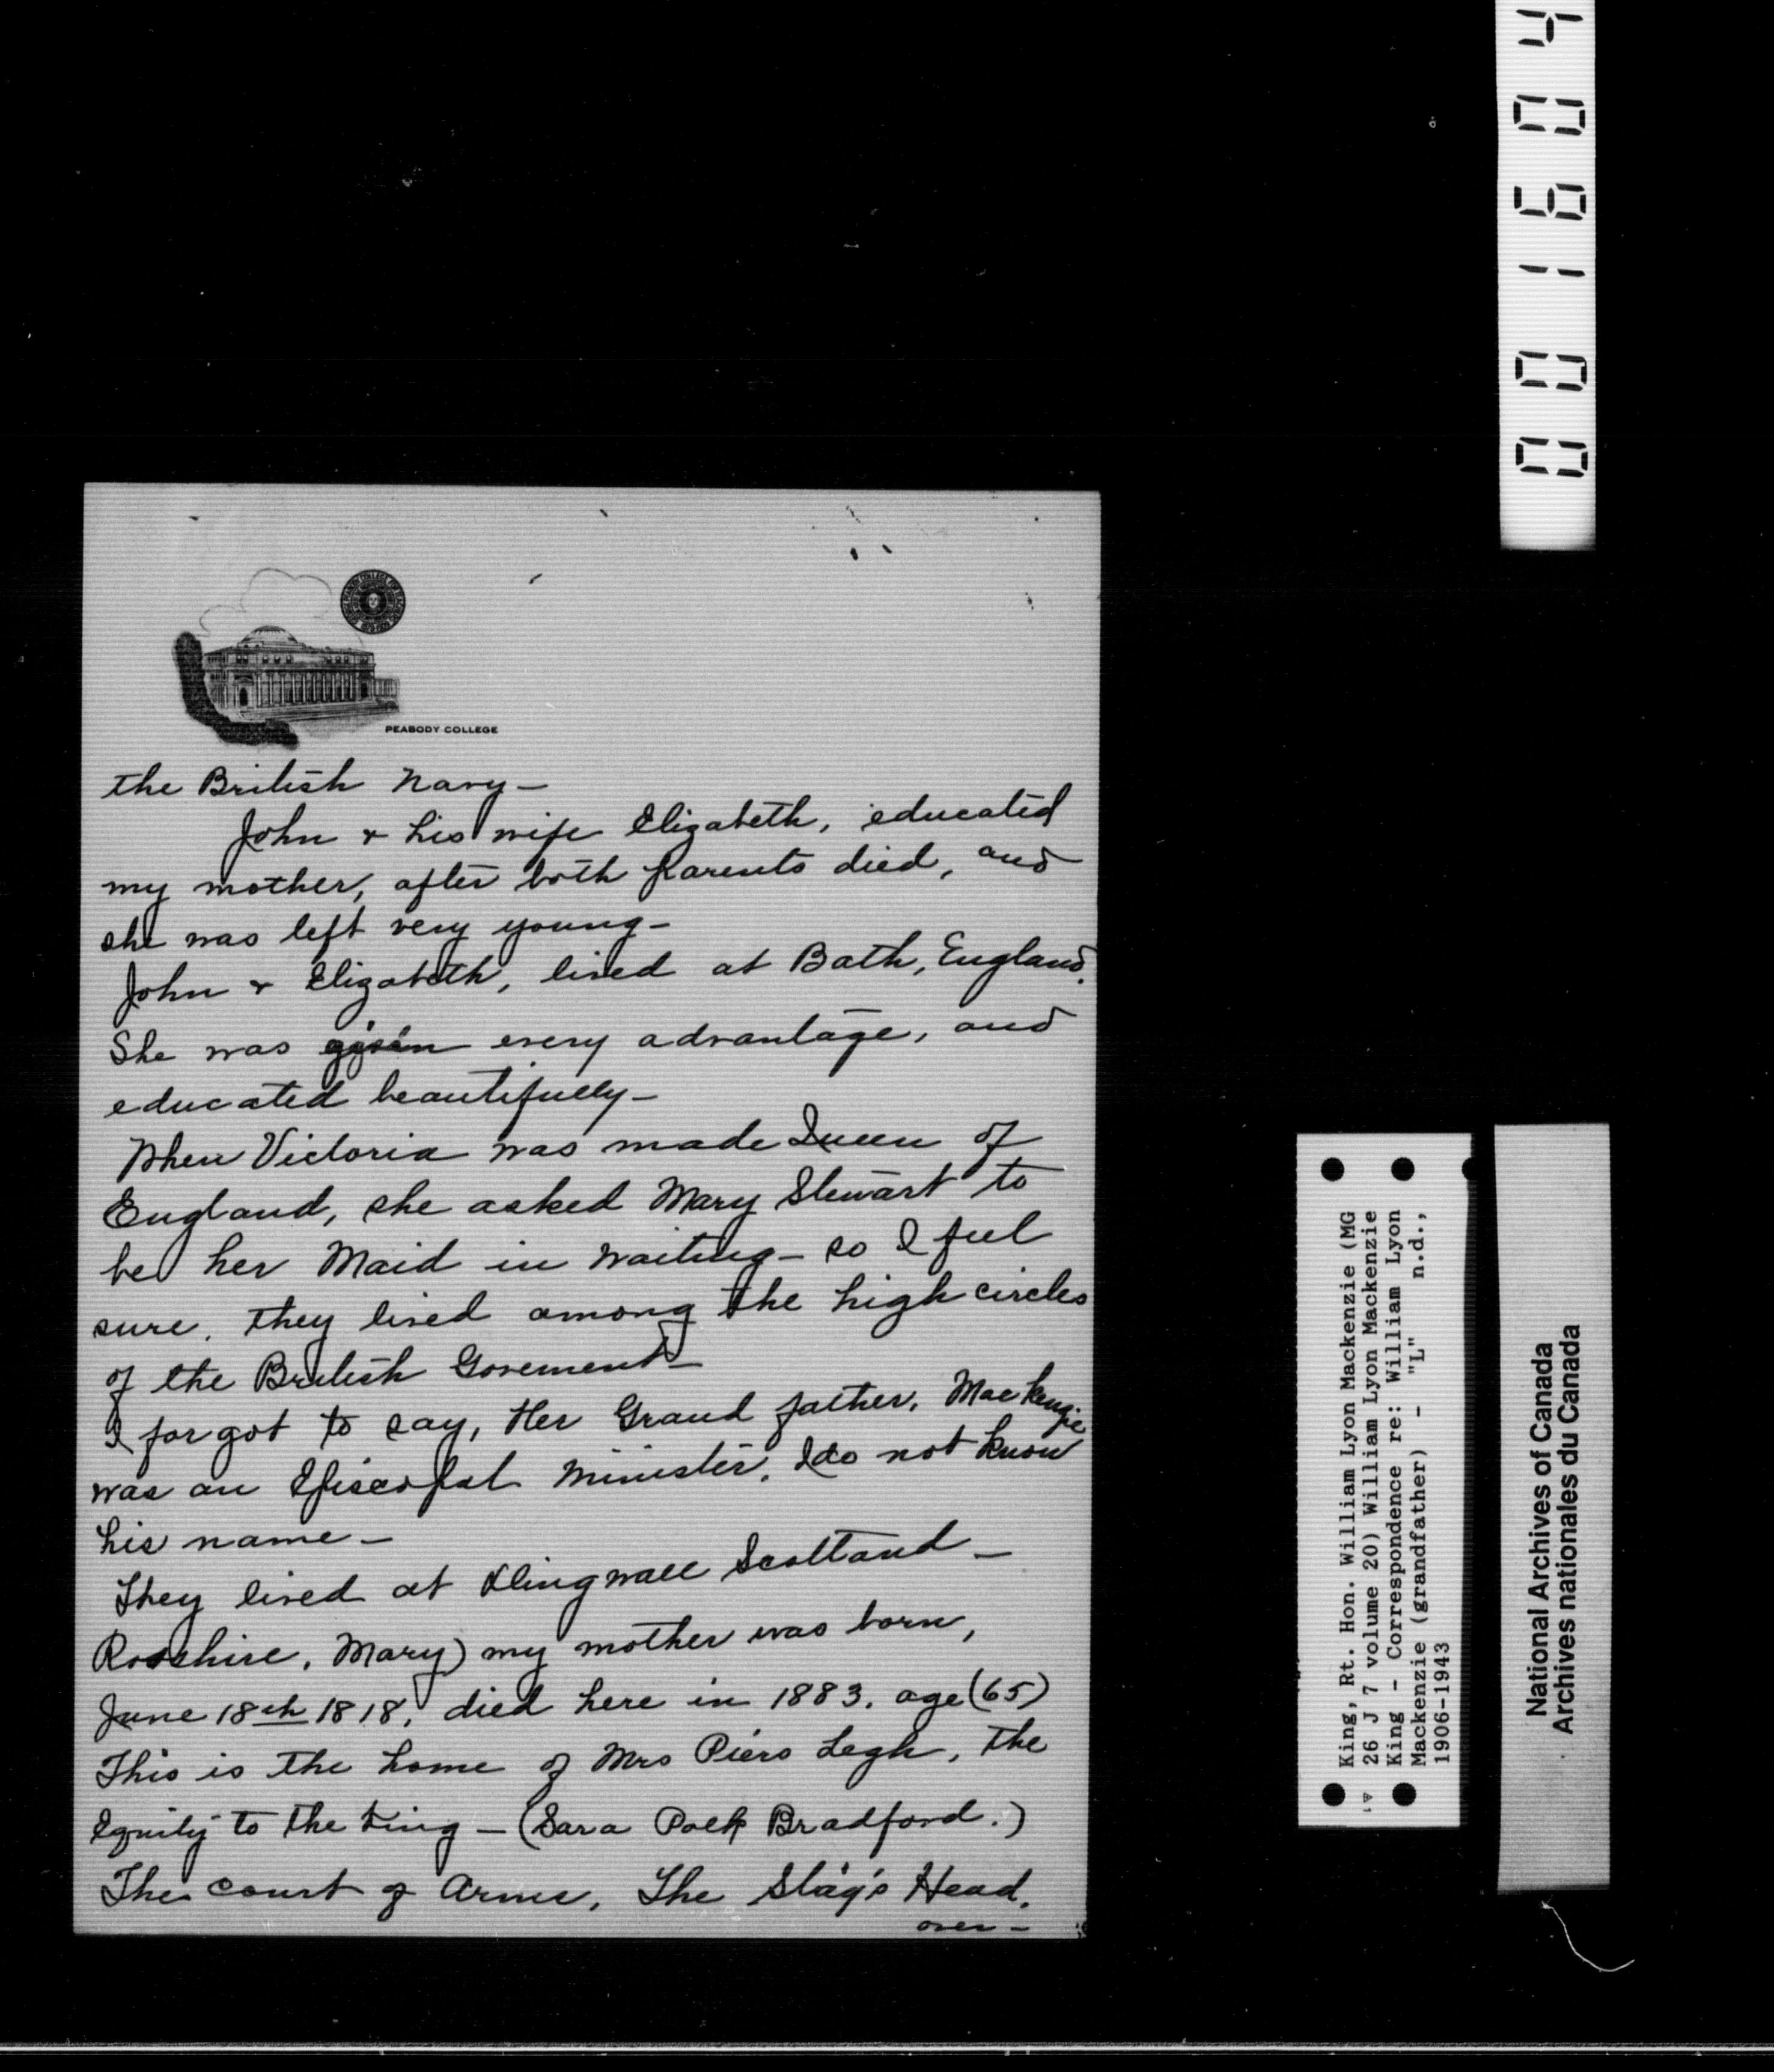 001604
PEABODY COLLEGE
the British Navy—
John & his wife Elizabeth, educated
my mother, after both parents died, and
she was left very young—
John & Elizabeth, lived at Bath, England.
She was given every advantage, and
educated beautifully—
When Victoria was made Queen of
England, she asked Mary Stewart to
be her Maid in waiting— so I feel
sure, they lived among the high circles
of the British Goverment—
I forgot to say, Her Grand father, Mackenzie
was an Episcopal Minister, I do not know
his name—
They lived at Dingwall Scotland—
Rosshire, Mary) my mother was born,
June 18th 1818, died here in 1883. age (65)
This is the home of Mrs Piers Legh, the
Equity to the King — (Sara Polk Bradford.)
The court of Arms, The Stag's Head.
over—
King, Rt. Hon. William Lyon Mackenzie (MG
26 J 7 volume 20) William Lyon Mackenzie
King - Correspondence re: William Lyon
Mackenzie (grandfather) - "L" n.d.,
1906-1943
National Archives of Canada
Archives nationales du Canada